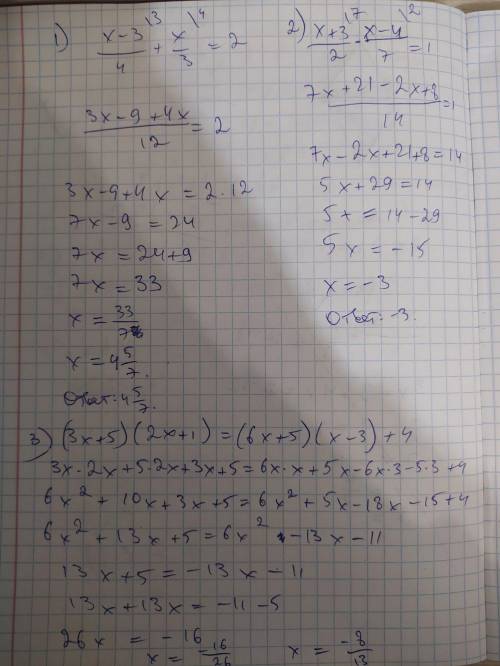 1) (x-3)/4 \3 + x/3 \4 = 2
(3x-9+4x)/12 = 2
3x-9+4x = 2·12
7x-9 = 24
7x = 24+9
7x = 33
x = 33/7
x = 4 5/7.
Ответ: 4 5/7.
2) (x+3)/2 \7 - (x-4)/7 \2 = 1
(7x+21-2x+8)/14 = 1
7x-2x+21+8=14
5x+29=14
5x = 14-29
5x = -15
x = -3
Ответ: -3.
3) (3x+5)(2x+1)=(6x+5)(x-3)+4
3x·2x+5·2x+3x+5=6x·x+5x-6x·3-5·3+4
6x²+10x+3x+5=6x²+5x-18x-15+4
6x²+13x+5=6x²-13x-11
13x+5=-13x-11
13x+13x=-11-5
26x = -16
x = -16/26 x = -8/13